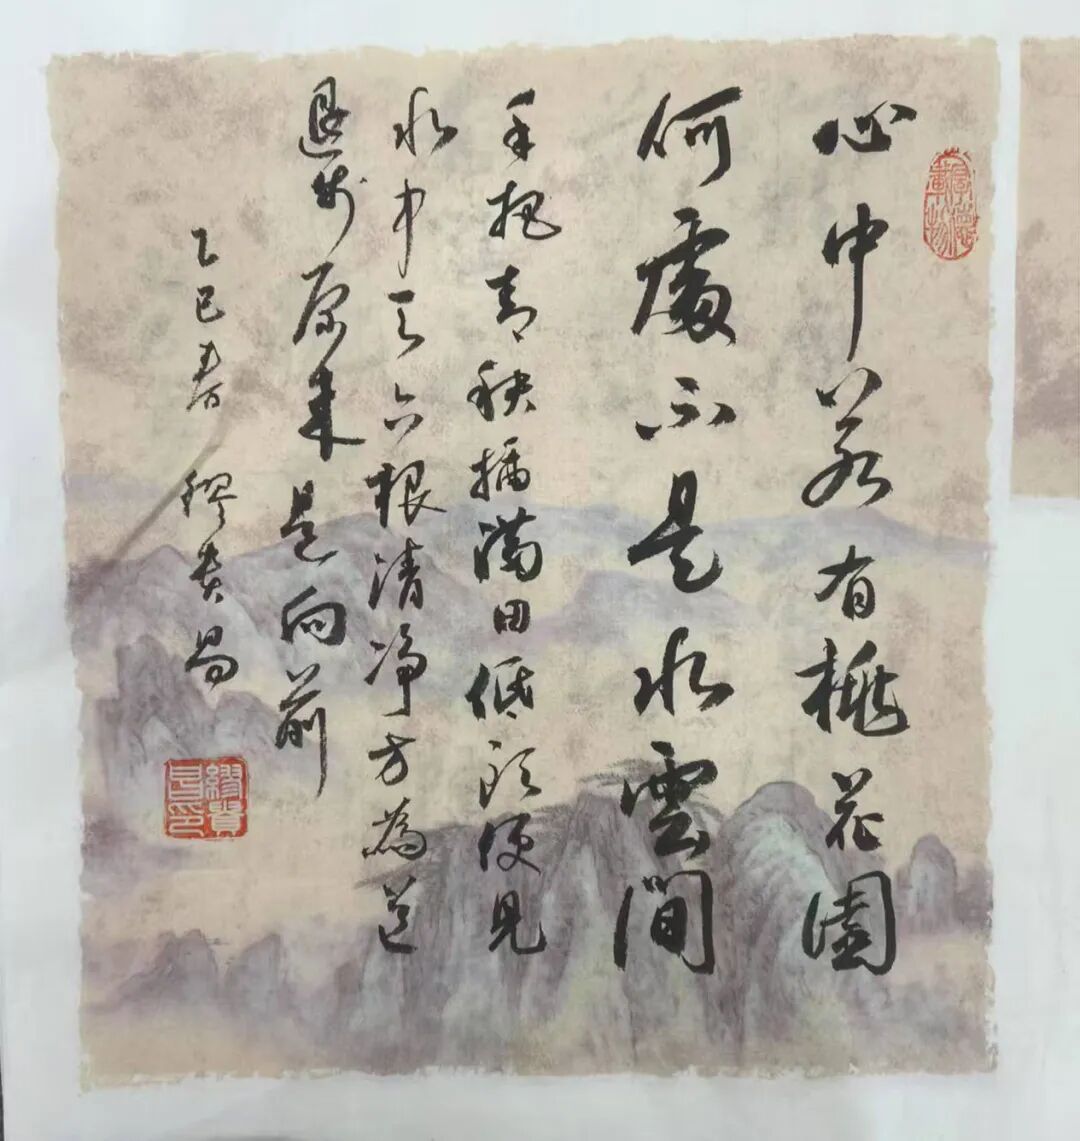 厚德載物
心中若有桃花園
何處不是水雲間
手把青秧插滿田低頭便見
水中天六根清净方為道
退步原来是向前
乙巳春 繆貴昌
繆貴昌印